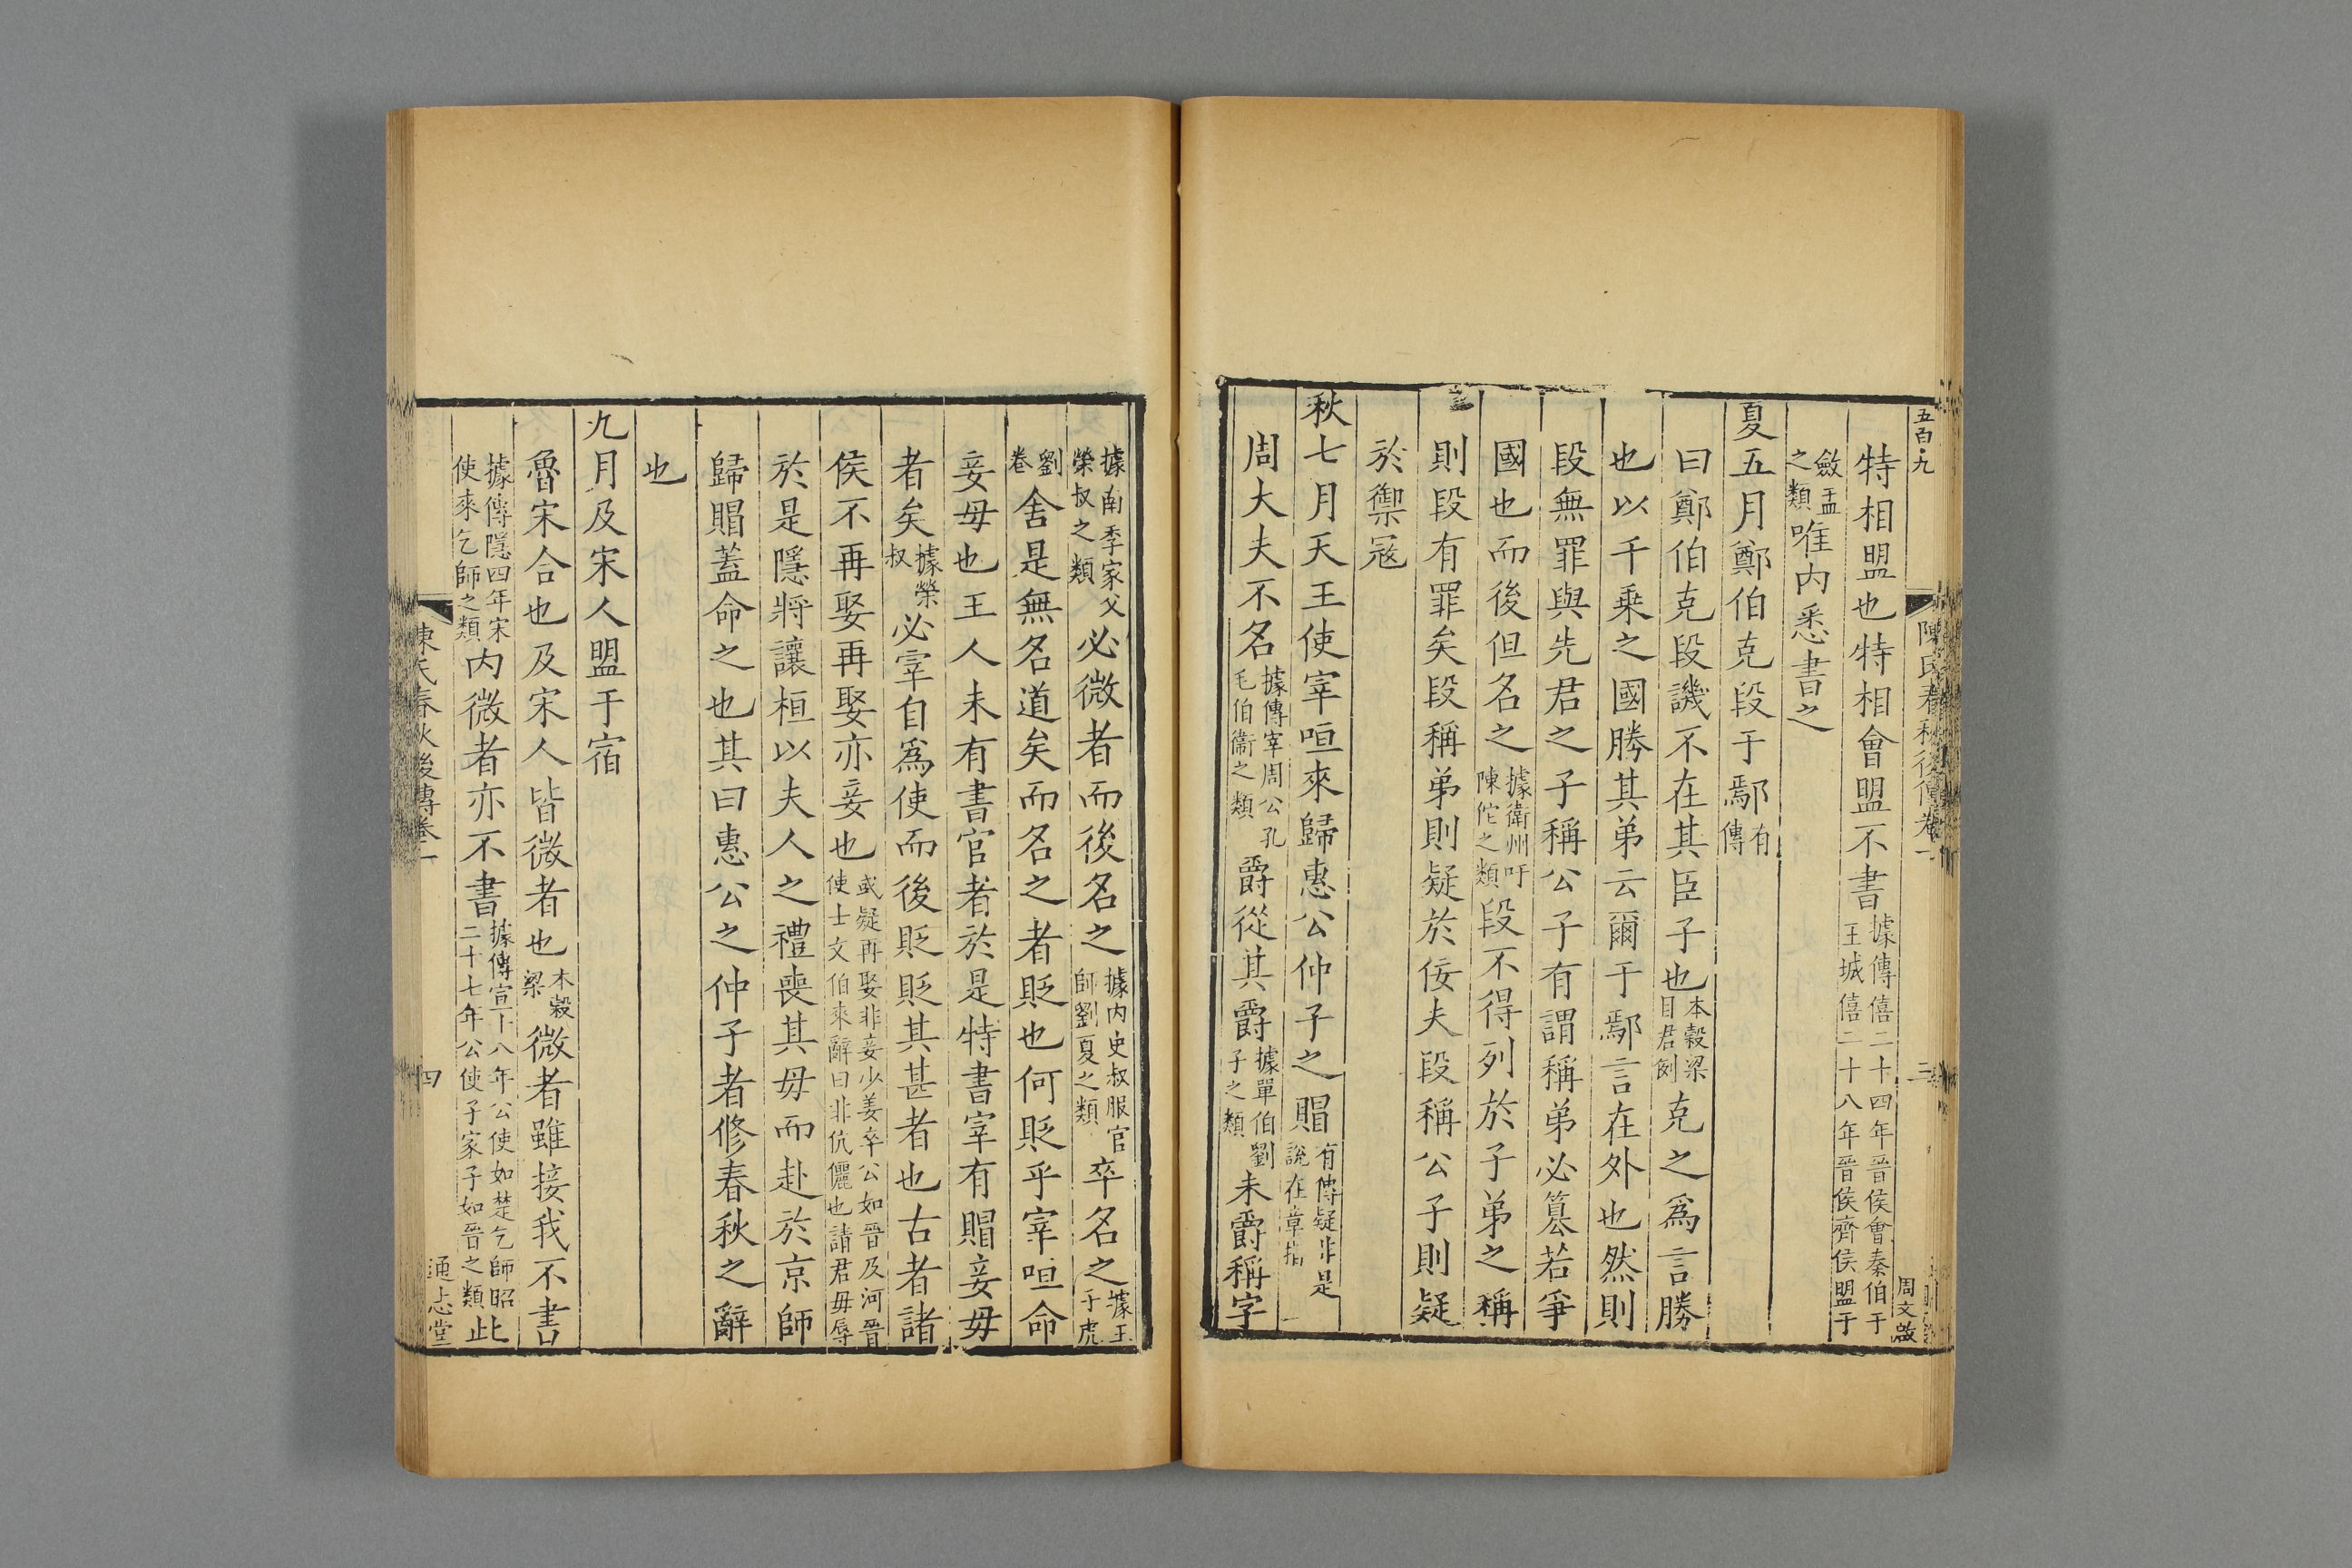 五百九
陳氏春秋後傳卷一
三
周文啟
特相盟也特相會盟不書據傳僖二十四年晉侯會秦伯于王城僖二十八年晉侯齊侯盟于
斂盂之類唯内悉書之
夏五月鄭伯克段于鄢有傳
曰鄭伯克段譏不在其臣子也本穀梁目君例克之爲言勝
也以千乗之國勝其弟云爾于鄢言在外也然則
段無罪與先君之子稱公子有謂稱弟必篡若爭
國也而後但名之據衛州吁陳佗之類段不得列於子弟之稱
則段有罪矣段稱弟則疑於佞夫段稱公子則疑
於禦寇
秋七月天王使宰咺來歸惠公仲子之賵有傳疑非是説在章指
周大夫不名據傳宰周公孔毛伯衞之類爵從其爵據單伯劉子之類未爵稱字
據南季家父榮叔之類必微者而後名之據内史叔服官師劉夏之類卒名之據王子虎
劉卷舍是無名道矣而名之者貶也何貶乎宰咺命
妾毋也王人未有書官者於是特書宰有賵妾毋
者矣據榮叔必宰自爲使而後貶貶其甚者也古者諸
侯不再娶再娶亦妾也或疑再娶非妾少姜卒公如晉及河晉使士文伯來辭曰非伉儷也請君毋辱
於是隱將讓桓以夫人之禮喪其毋而赴於京師
歸賵蓋命之也其曰惠公之仲子者修春秋之辭
也
九月及宋人盟于宿
魯宋合也及宋人皆微者也本穀梁微者雖接我不書
據傳隱四年宋使來乞師之類内微者亦不書據傳宣十八年公使如楚乞師昭二十七年公使子家子如晉之類此
陳氏春秋後傳卷一
四
通志堂